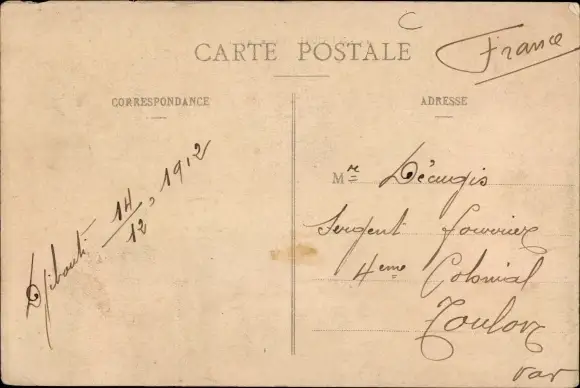 C
France
CARTE POSTALE
CORRESPONDANCE
ADRESSE
Djibouti 14/12, 1912
Mr Décugis
Sergent fourrier
4eme Colonial
Toulon
Var